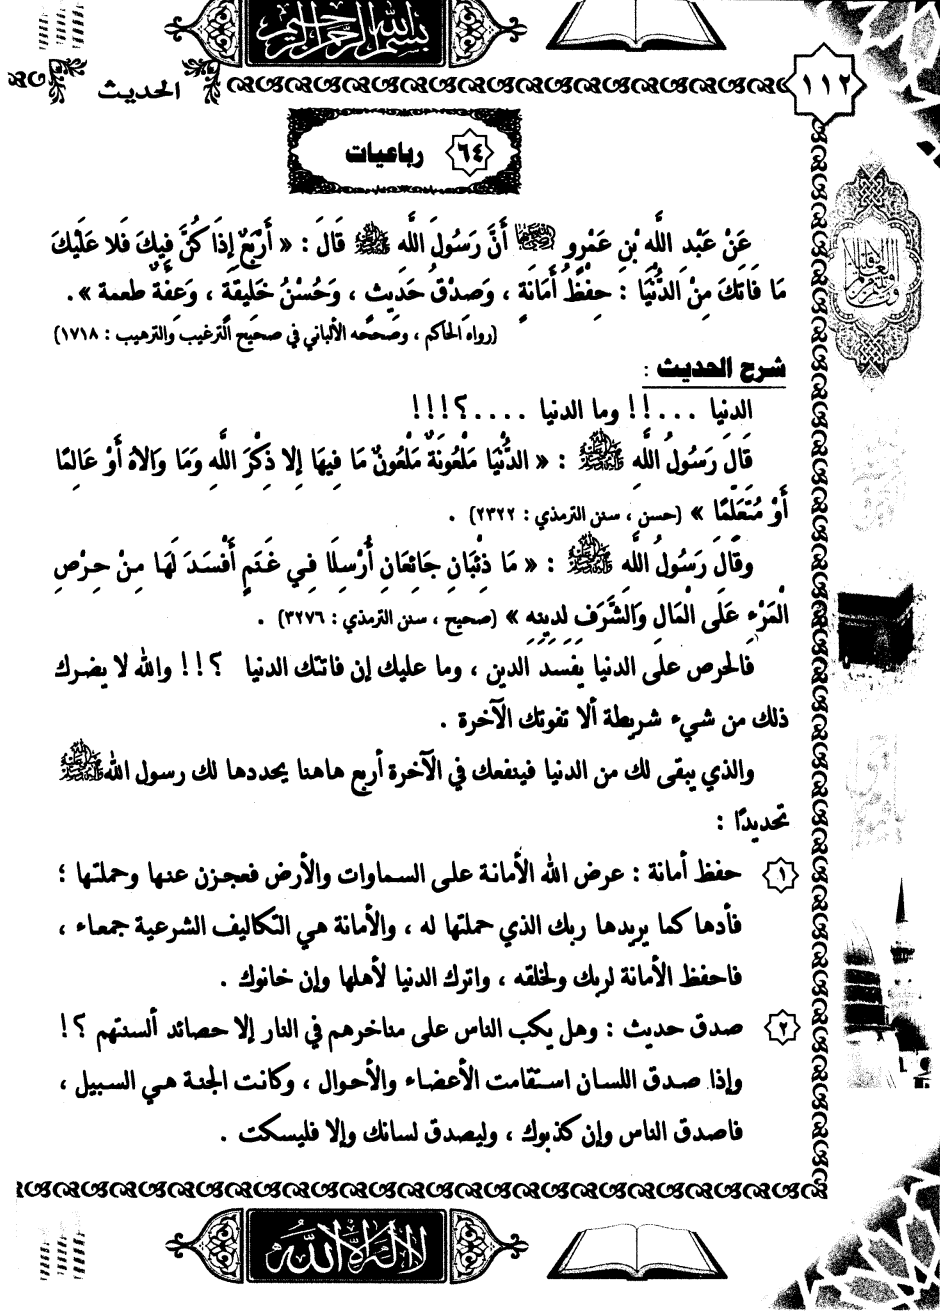 بسم الله الرحمن الرحيم
١١٢
الحديث
٦٤ رباعيات
عَنْ عَبْدِ اللَّهِ بْنِ عَمْرٍو رضي الله عنهما أَنَّ رَسُولَ اللَّهِ ﷺ قَالَ : « أَرْبَعٌ إِذَا كُنَّ فِيكَ فَلا عَلَيْكَ
مَا فَاتَكَ مِنْ الدُّنْيَا : حِفْظُ أَمَانَةٍ ، وَصِدْقُ حَدِيثٍ ، وَحُسْنُ خَلِيقَةٍ ، وَعِفَّةٌ طعمة » .
(رواه الحاكم ، وصححه الألباني في صحيح الترغيب والترهيب : ١٧١٨)
شرح الحديث :
الدنيا ....!! وما الدنيا ....؟!!!
قَالَ رَسُولُ اللَّهِ ﷺ : « الدُّنْيَا مَلْعُونَةٌ مَلْعُونٌ مَا فِيهَا إِلا ذِكْرَ اللَّهِ وَمَا وَالاهُ أَوْ عَالِمًا
أَوْ مُتَعَلِّمًا » (حسن ، سنن الترمذي : ٢٣٢٢) .
وقَالَ رَسُولُ اللَّهِ ﷺ : « مَا ذِئْبَانِ جَائِعَانِ أُرْسِلَا فِي غَنَمٍ أَفْسَدَ لَهَا مِنْ حِرْصِ
الْمَرْءِ عَلَى الْمَالِ وَالشَّرَفِ لِدِينِهِ » (صحيح ، سنن الترمذي : ٣٢٧٦) .
فالحرص على الدنيا يفسد الدين ، وما عليك إن فاتتك الدنيا ؟!! والله لا يضرك
ذلك من شيء شريطة ألا تفوتك الآخرة .
والذي يبقى لك من الدنيا فينفعك في الآخرة أربع هاهنا يحددها لك رسول الله ﷺ
تحديدًا :
١ حفظ أمانة : عرض الله الأمانة على السماوات والأرض فعجزن عنها وحملتها ؛
فأدها كما يريدها ربك الذي حملتها له ، والأمانة هي التكاليف الشرعية جمعاء ،
فاحفظ الأمانة لربك ولخلقه ، واترك الدنيا لأهلها وإن خانوك .
٢ صدق حديث : وهل يكب الناس على مناخرهم في النار إلا حصائد ألسنتهم ؟!
وإذا صدق اللسان استقامت الأعضاء والأحوال ، وكانت الجنة هي السبيل ،
فاصدق الناس وإن كذبوك ، وليصدق لسانك وإلا فليسكت .
لا إله إلا الله